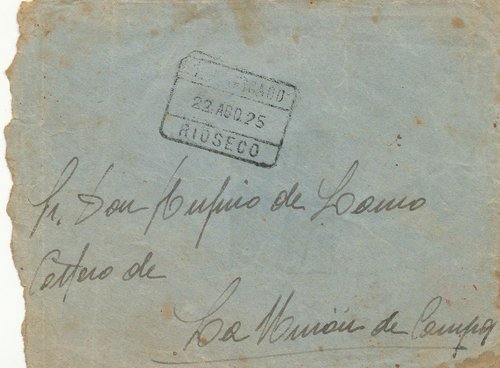 22 AGO 25
RIOSECO
Sr. Don Rufino de Lamo
Cartero de
La Union de Campos